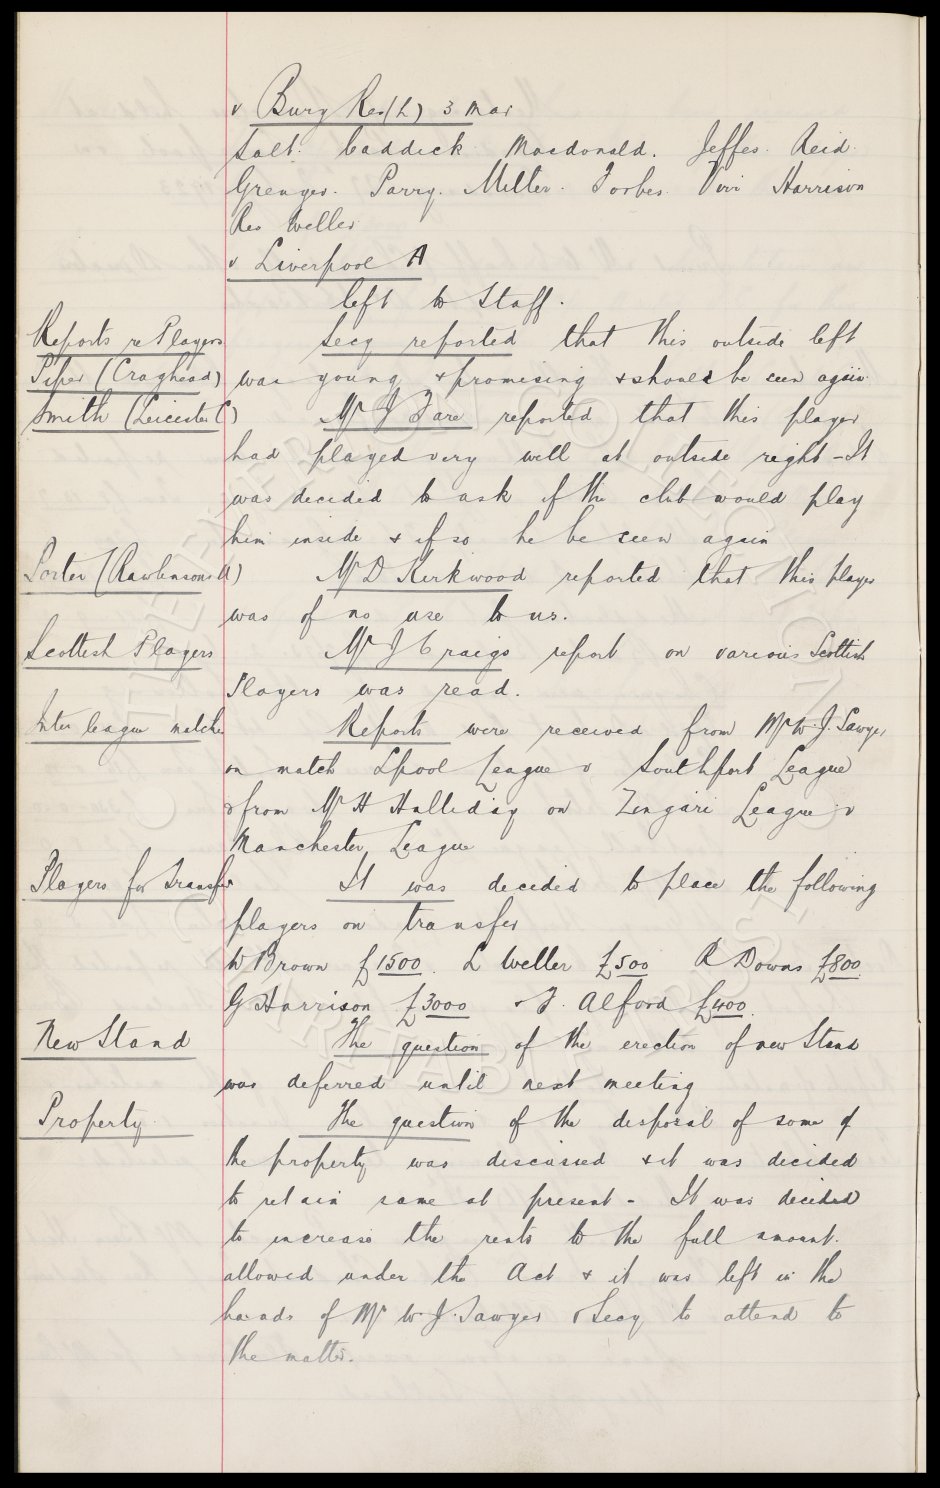 v Bury Res (h) 3 Mar
Salt. Caddick. Macdonald. Jeffes. Reid.
Grenyer. Parry. Miller. Forbes. Virr Harrison
Res Weller
v Liverpool A
left to Staff.
Reports re Players
Secy reported that this outside left
Piper (Craghead) was young & promising & should be seen again.
Smith (Leicester C) Mr J Fare reported that this player
had played very well at outside right - It
was decided to ask if the club would play
him inside & if so he be seen again
Porter (Rawlinsons A) Mr D Kirkwood reported that this player
was of no use to us.
Scottish Players Mr J Craigs report on various Scottish
Players was read.
Inter league matches Reports were received from Mr W. J. Sawyer
on match Lpool League v Southport League
& from Mr H Halliday on Zingari League v
Manchester League
Players for Transfer It was decided to place the following
players on transfer
W Brown £1500. L Weller £500 R Downs £800.
G Harrison £3000 & F. Alford £400.
New Stand The question of the erection of new Stand
was deferred until next meeting
Property. The question of the disposal of some of
the property was discussed & it was decided
to retain same at present - It was decided
to increase the rents to the full amount.
allowed under the Act & it was left in the
hands of Mr W. J. Sawyer & Secy to attend to
the matter.